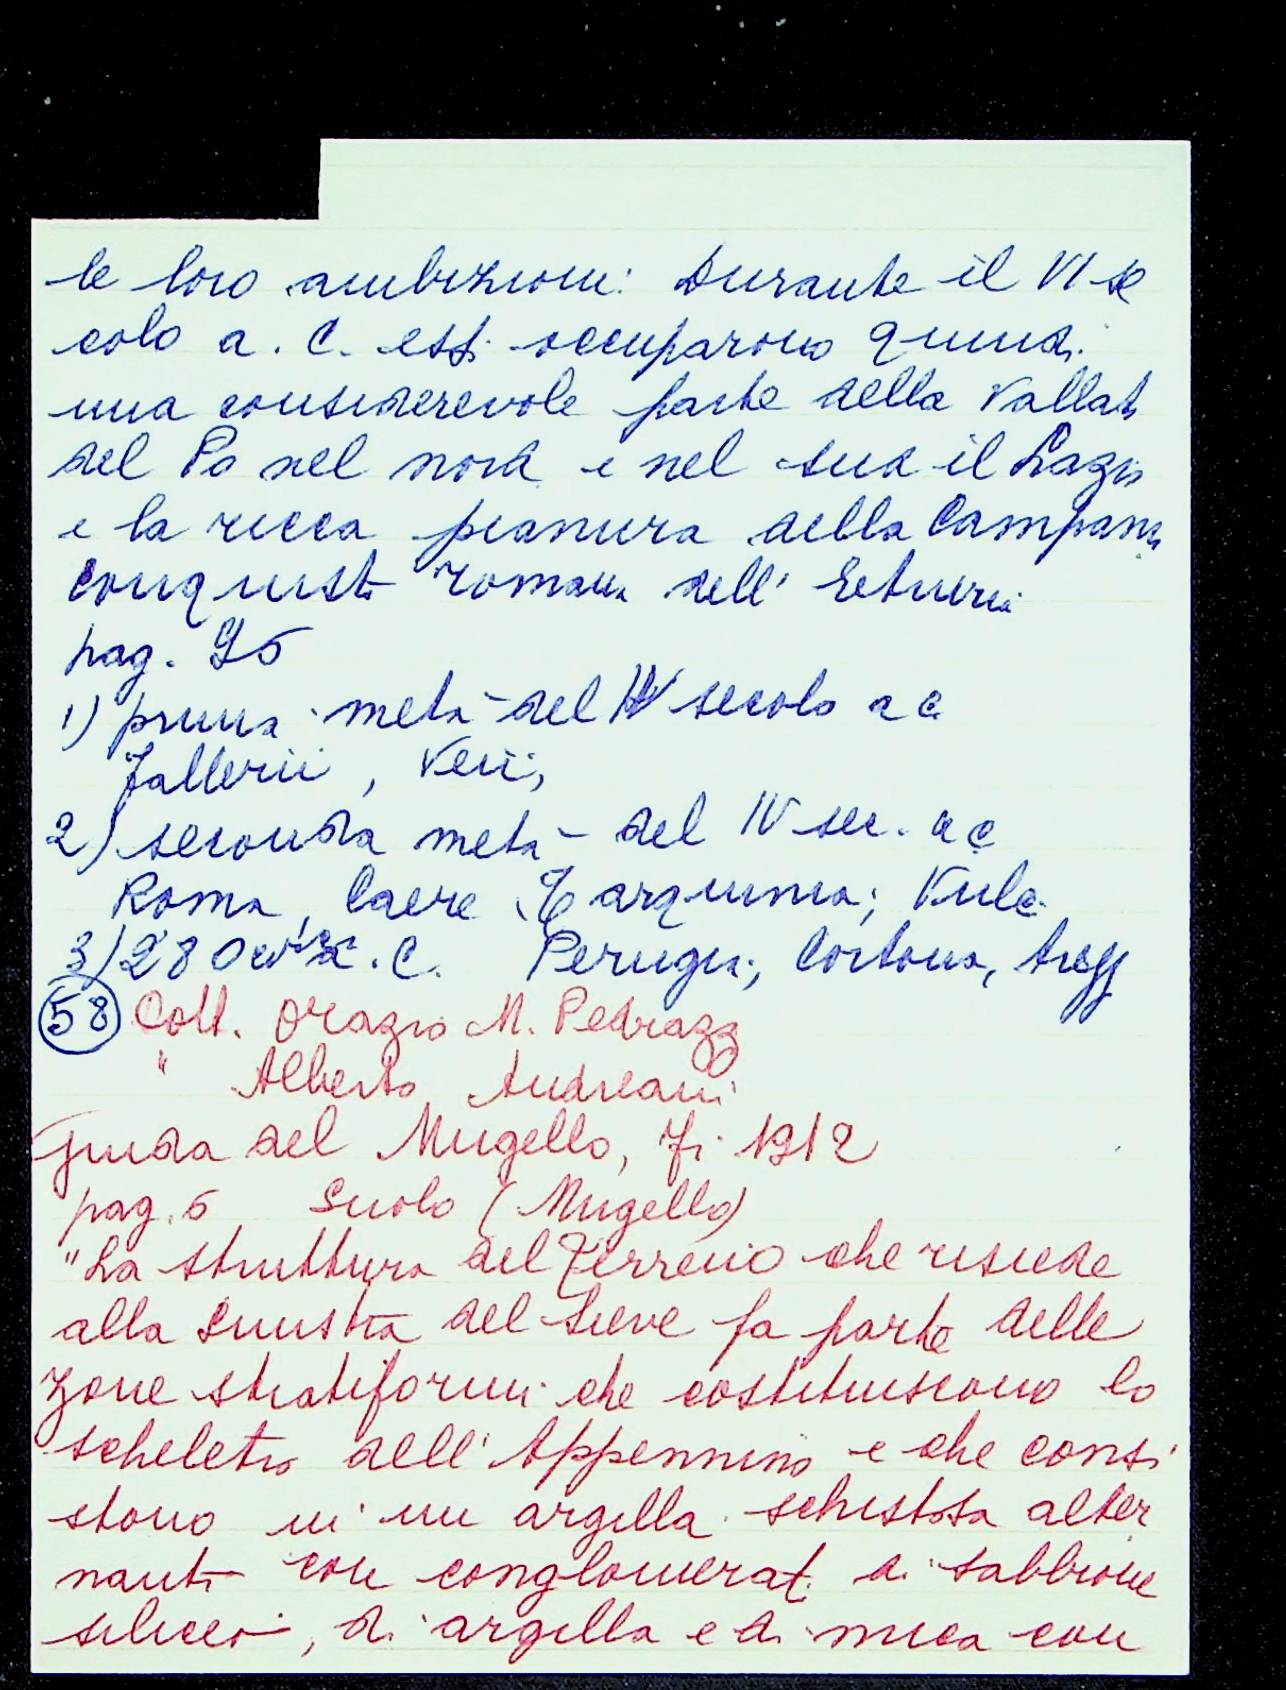 le loro ambizioni: Durante il VI se
colo a. C. essi occuparono quindi
una considerevole parte della Vallata
del Po nel nord e nel sud il Lazio
e la ricca pianura della Campania
Conquista romana dell' Etruria
pag. 95
1) prima metà del IV secolo a C.
Fallerii, Veii,
2) seconda metà del IV sec. a C
Roma, Caere, Tarquinia; Vulci
3) 280 a. C. Perugia, Cortona, Arezz
58 Coll. Orazio M. Pedrazzi
" Alberto Andreani
Guida del Mugello, Fi 1912
pag. 5 Suolo (Mugello)
"La struttura del Terreno che risiede
alla Sinistra del Sieve fa parte delle
zone stratiformi che costituiscono lo
scheletro dell' Appennino e che consi
stono in un argilla schistosa alter
nanti con conglomerati di sabbione
siliceo, di argilla e di mica con